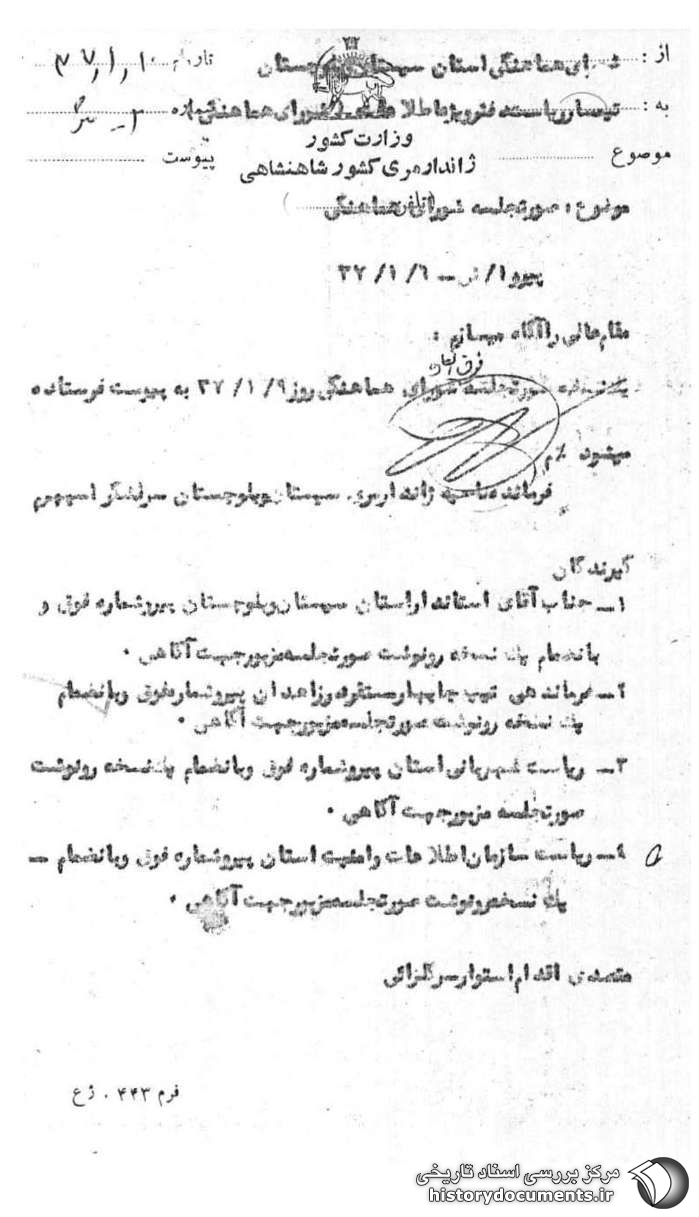 از : شورای هماهنگی استان سیستان و بلوچستان
تاریخ ۴۷/۱/۱۰
به : تیمسار ریاست دفتر ویژه اطلاعات (شورای هماهنگی)
شماره
وزارت کشور
ژاندارمری کشور شاهنشاهی
موضوع
پیوست
موضوع : صورتجلسه شورای هماهنگی
پیرو ۱/ ش – ۶/ ۱/ ۴۷
مقام عالی را آگاه میسازیم :
فوق العاده
یک نسخه صورتجلسه شورای هماهنگی روز ۹/ ۱/ ۴۷ به پیوست فرستاده
میشود ٪م
فرمانده ناحیه ژاندارمری سیستان و بلوچستان سرلشکر
گیرندگان
۱ــ جناب آقای استاندار استان سیستان و بلوچستان پیرو شماره فوق و
بانضمام یک نسخه رونوشت صورتجلسه مزبور جهت آگاهی ۰
۲ــ فرماندهی تیپ چابهار مستقر در زاهدان پیرو شماره فوق و بانضمام
یک نسخه رونوشت صورتجلسه مزبور جهت آگاهی ۰
۳ــ ریاست شهربانی استان پیرو شماره فوق و بانضمام یک نسخه رونوشت
صورتجلسه مزبور جهت آگاهی ۰
۴ــ ریاست سازمان اطلاعات و امنیت استان پیرو شماره فوق و بانضمام ــ
یک نسخه رونوشت صورتجلسه مزبور جهت آگاهی ۰
متصدی اقدام استوار سرگلزائی
فرم ۴۴۳ ۰ ژ ع
مرکز بررسی اسناد تاریخی
historydocuments.ir